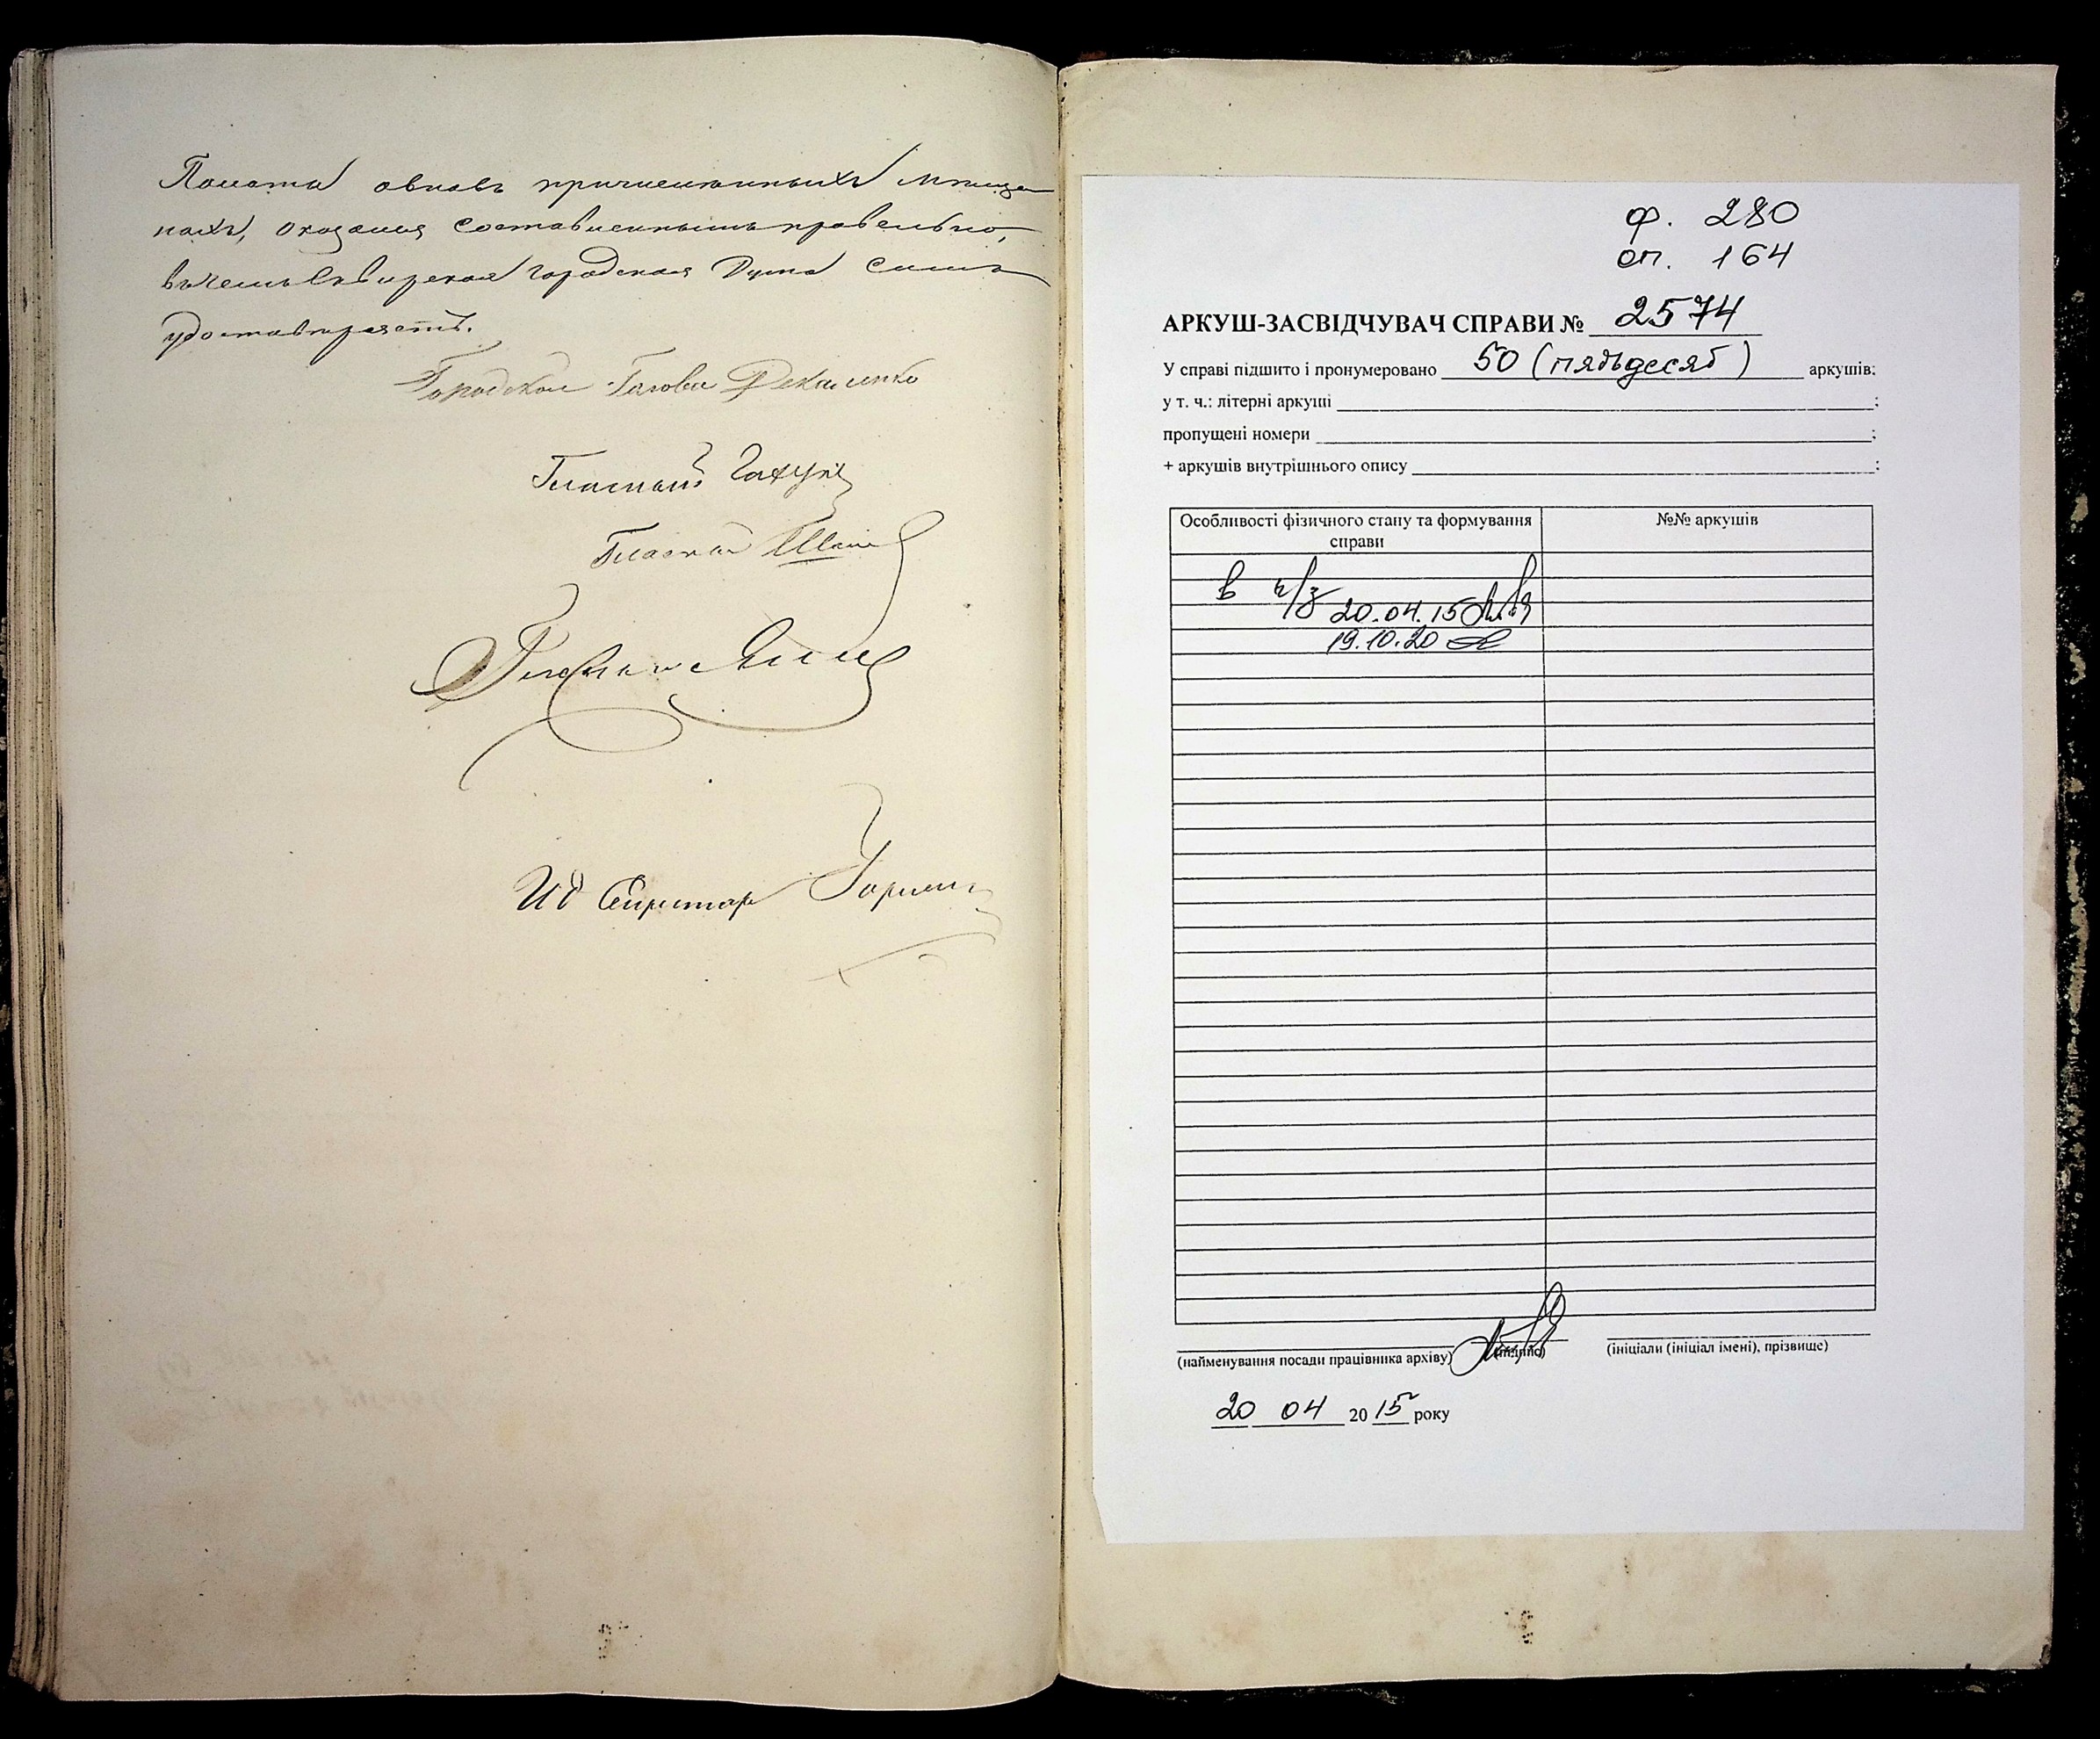 овновь причисленныхъ мѣща
нахъ, оказался составленнымъ правельно,
въ чемъ Сквирская Городская Дума симъ
удостовѣряетъ.
Городской Голова
Гласный
Гласный
Гласный
ИД Секретаря
ф. 280
оп. 164
АРКУШ-ЗАСВІДЧУВАЧ СПРАВИ № 2574
У справі підшито і пронумеровано 50 (пядьдесят) аркушів;
у т. ч.: літерні аркуші ;
пропущені номери ;
+ аркушів внутрішнього опису ;
Особливості фізичного стану та формування справи №№ аркушів
в ч/з 20.04.15
19.10.20
(найменування посади працівника архіву) (підпис) (ініціали (ініціал імені), прізвище)
20 04 2015 року